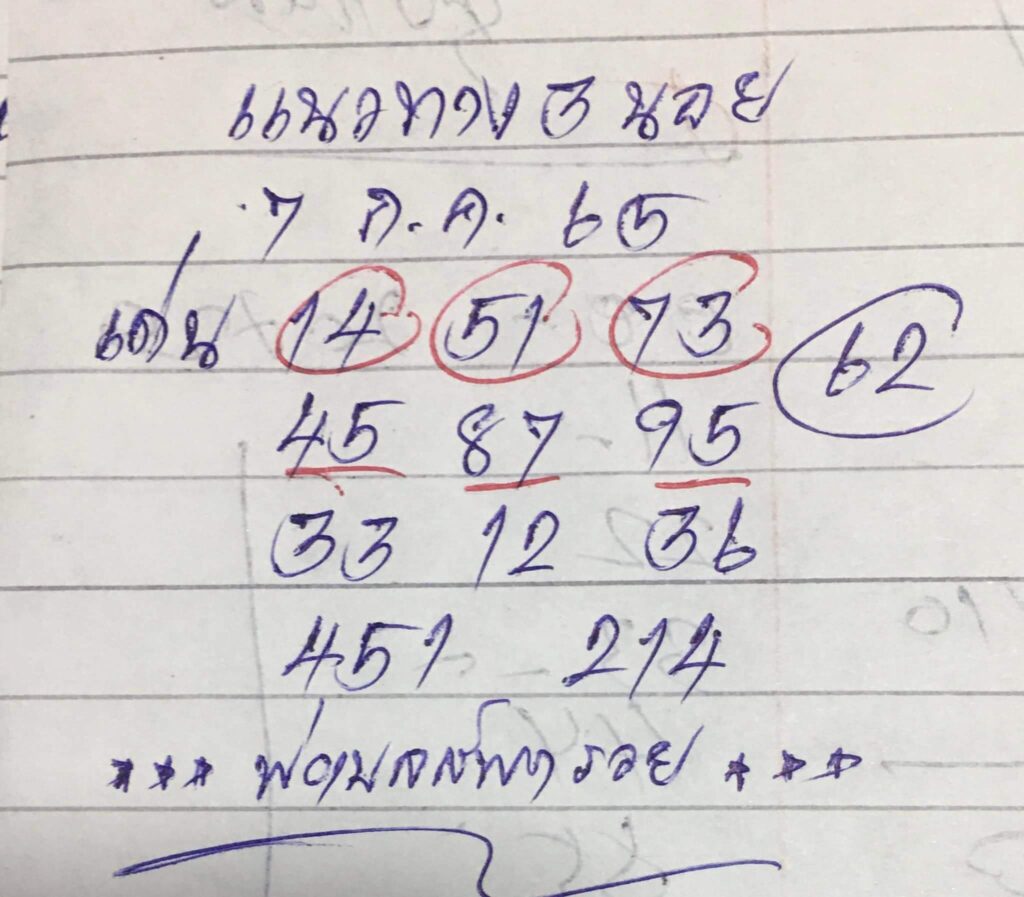 แนวทาง 3 นอย
7 ก.ค. 65
เด่น 14 51 73 62
45 87 95
33 12 36
451 214
*** รวย ***